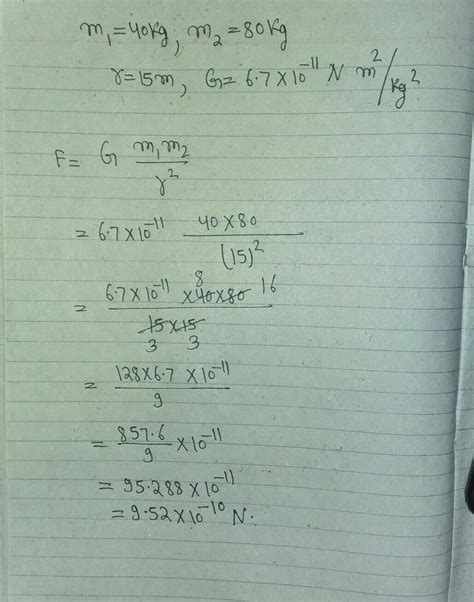 m₁=40kg, m₂=80kg
r=15m, G=6.7×10⁻¹¹ N m²/kg²
F= G m₁m₂/r²
= 6.7×10⁻¹¹ 40×80/(15)²
= 6.7×10⁻¹¹ ×40×80 8 16/15×15 3 3
= 128×6.7×10⁻¹¹/9
= 857.6/9 ×10⁻¹¹
= 95.288×10⁻¹¹
= 9.52×10⁻¹⁰ N.